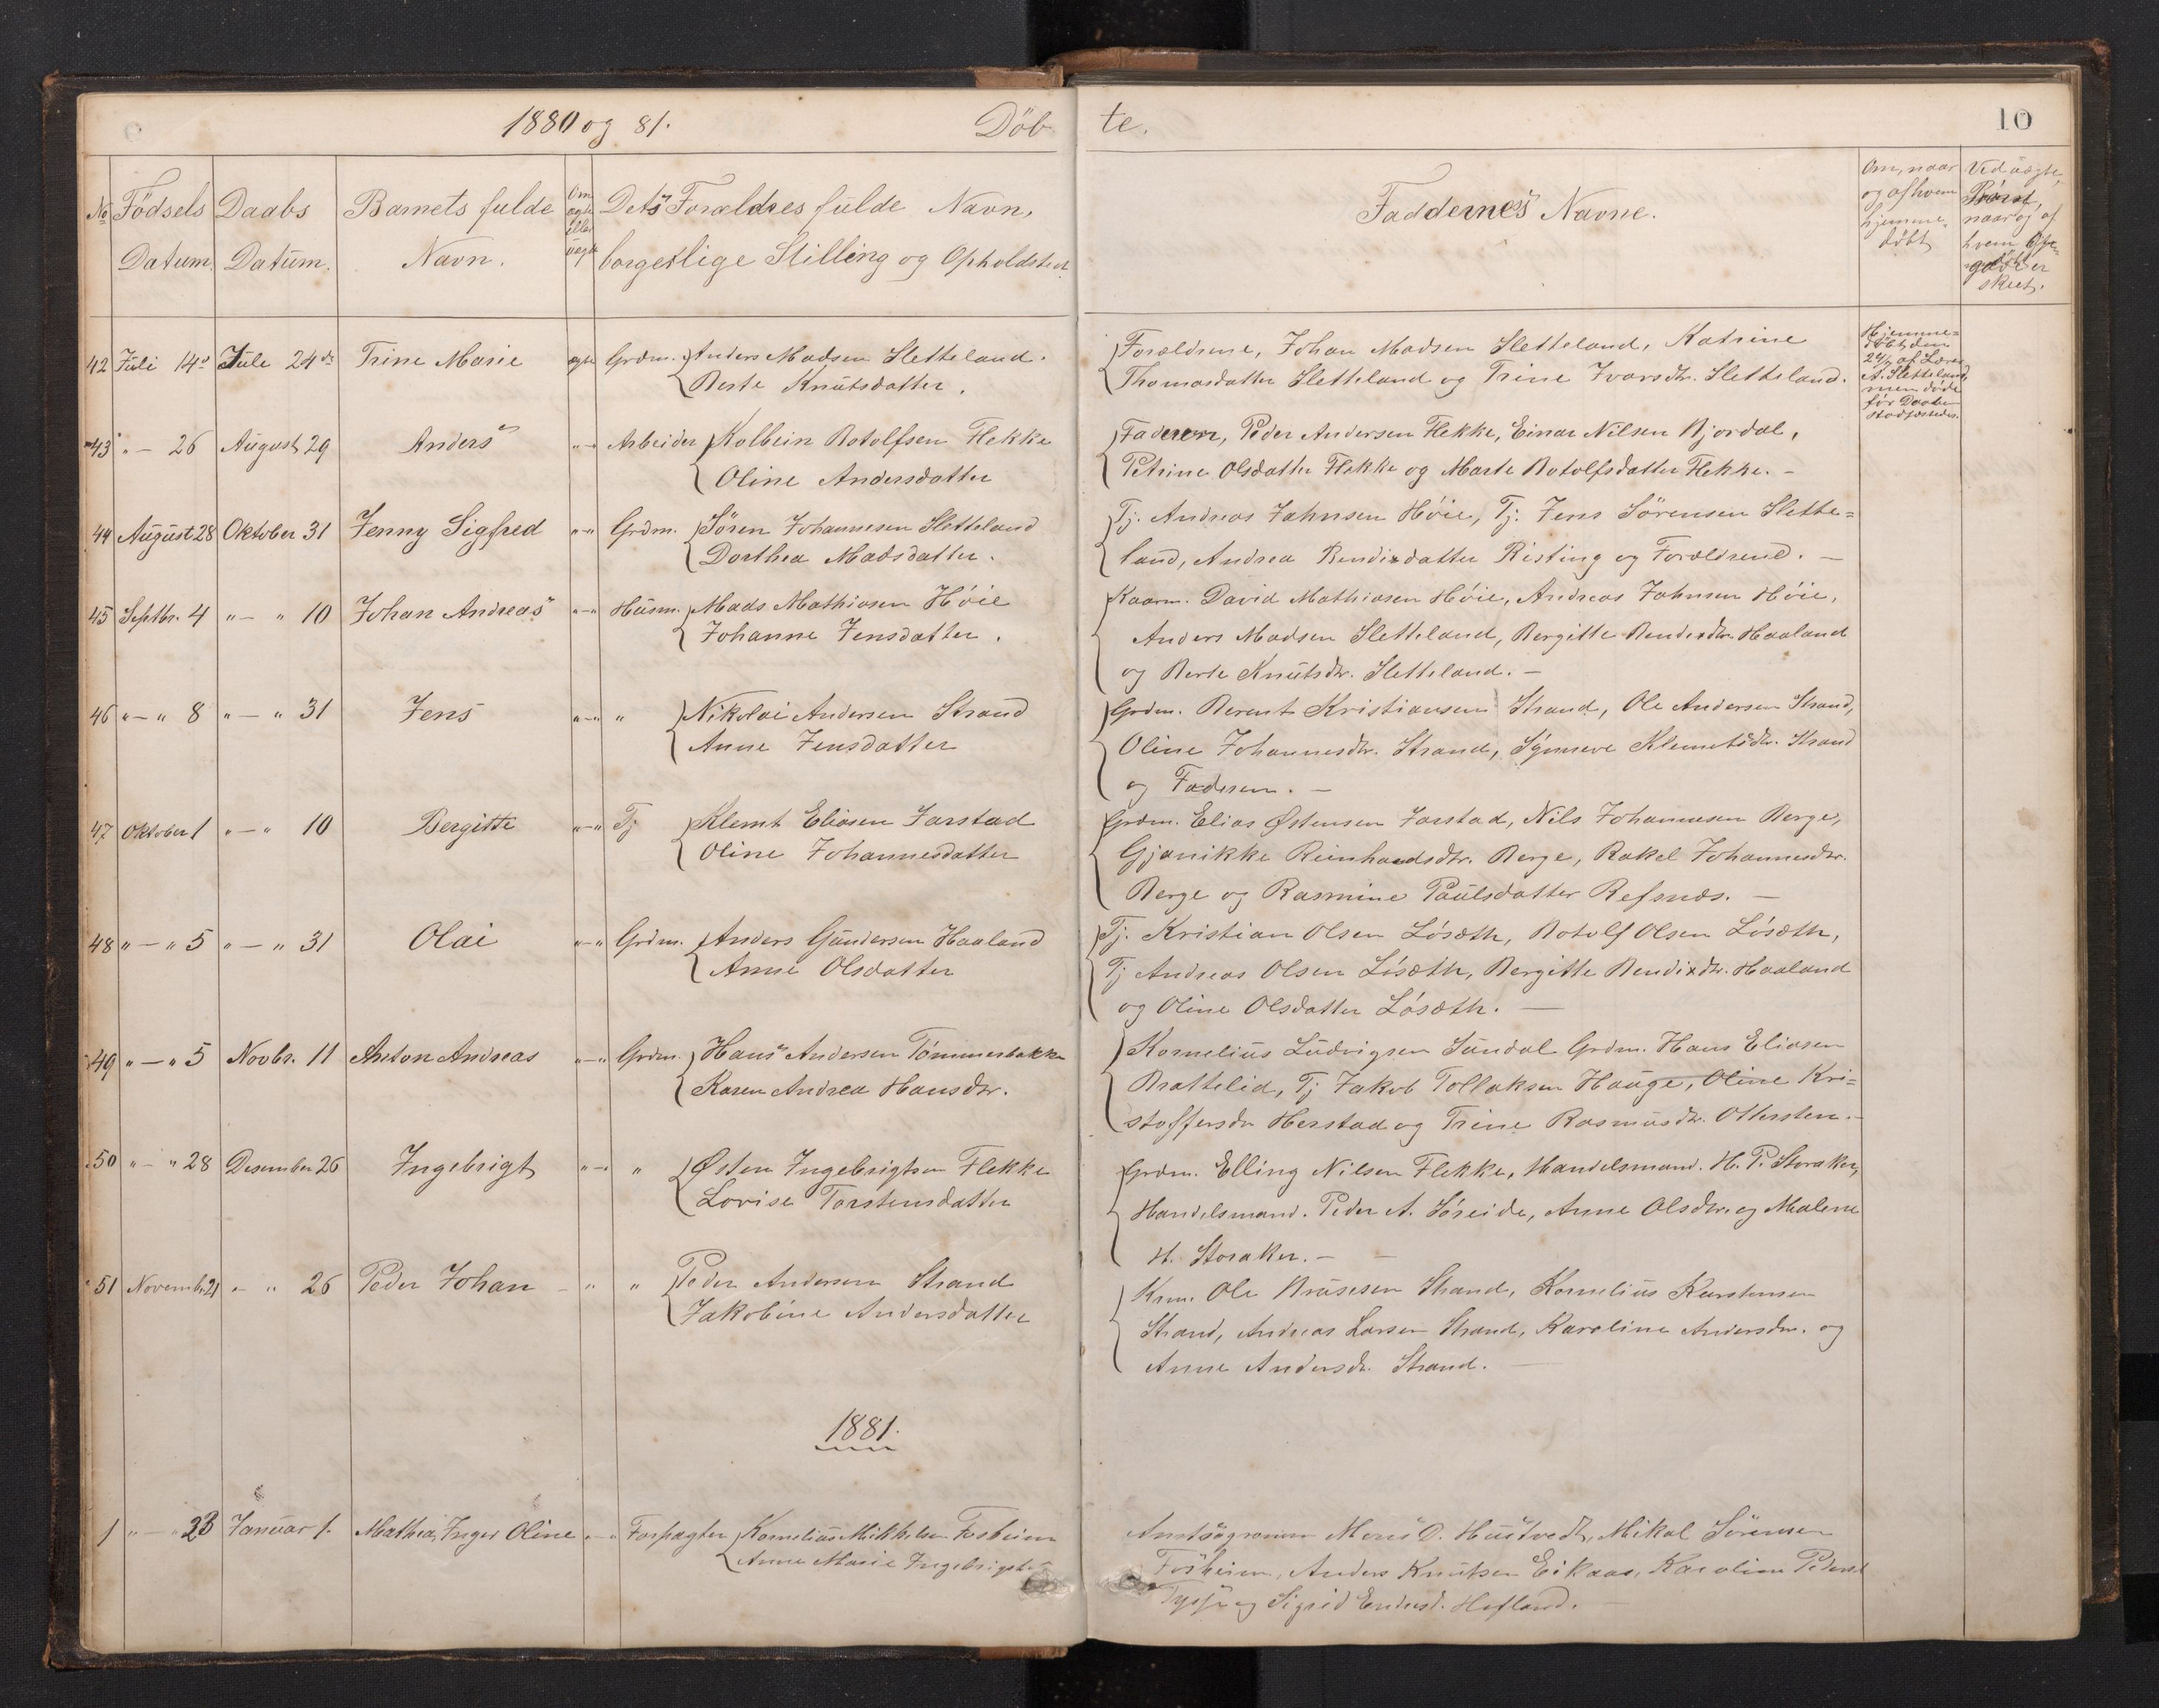 1880 og 81. Döb te. 10
No Födsels Datum. Daabs Datum. Barnets fulde Navn. Om ægte eller uægte Dets Forældres fulde Navn, borgerlige Stilling og Opholdsted Faddernes Navne. Om, naar og af hvem hjemmedöbt Ved uægte,
42 Juli 14de Jule 24de Trine Marie ægte Grdm. Anders Madsen Sletteland.
Berte Knutsdatter.
Forældrene, Johan Madsen Sletteland, Katrine
Thomasdatter Sletteland og Trine Ivarsdtr. Sletteland.
Hjemme=
döbt den
24/7 af Lærer
A. Sletteland,
men döde
för Daaben
stadfæstedes.
43 " — 26 August 29 Anders " — " Arbeider Kolbein Botolfsen Flekke
Oline Andersdatter
Faderen, Peder Andersen Flekke, Einar Nilsen Bjordal,
Petrine Olsdatter Flekke og Marte Botolfsdatter Flekke. –
44 August 28 Oktober 31 Jenny Sigfred " — " Grdm. Sören Johannesen Sletteland
Dorthea Madsdatter.
Tj. Andreas Jahnsen Höie, Tj. Jens Sörensen Slette=
land, Andrea Bendixdatter Risting og Forældrene. —
45 Septbr. 4 " — " 10 Johan Andreas " — " Husm. Mads Mathiasen Höie
Johanne Jensdatter.
Kaarm. David Mathiasen Höie, Andreas Jahnsen Höie,
Anders Madsen Sletteland, Bergitte Bendixdtr. Haaland
og Berte Knutsdtr. Sletteland. –
46 " — " 8 " — " 31 Jens " — " " Nikolai Andersen Strand
Anne Jensdatter
Grdm. Berent Kristiansen Strand, Ole Andersen Strand,
Oline Johannesdtr. Strand, Synneve Klemetsdtr. Strand
og Faderen. –
47 Oktober 1 " — " 10 Bergitte " — " Tj Klemt Eliasen Jarstad
Oline Johannesdatter
Grdm. Elias Østensen Jarstad, Nils Johannesen Berge,
Gjanikke Reinhardsdtr. Berge, Rakel Johannesdtr.
Berge og Rasmine Paulsdatter Refsnæs. —
48 " — " 5 " — " 31 Olai " — " Grdm. Anders Gundersen Haaland
Anne Olsdatter
Tj. Kristian Olsen Lösæth, Botolf Olsen Lösæth,
Tj Andreas Olsen Lösæth, Bergitte Bendixdtr. Haaland
og Oline Olsdatter Lösæth. —
49 " — " 5 Novbr. 11 Anton Andreas " — " Grdm. Hans Andersen Tömmerbakke
Karen Andrea Hansdtr.
Kornelius Ludvigsen Sundal Grdm. Hans Eliasen
Brattelid, Tj Jakob Tollaksen Hauge, Oline Kri=
stoffersdtr Herstad og Trine Rasmusdtr. Ottersten. –
50 " — " 28 Desember 26 Ingebrigt " — " " Østen Ingebrigtsen Flekke
Lovise Torstensdatter
Grdm. Elling Nilsen Flekke, Handelsmand. H. P. Storaker,
Handelsmand. Peder A. Söreide, Anne Olsdtr. og Malene
H. Storaker. –
51 Novembr. 21 " — " 26 Peder Johan — " " Peder Andersen Strand
Jakobine Andersdatter
Krm. Ole Brusesen Strand, Kornelius Karstensen
Strand, Andreas Larsen Strand, Karoline Andersdtr. og
Anne Andersdtr. Strand. —
1881.
1 " — " 23 Januar 1. Mathea Inger Oline " — " Forpagter Kornelius Mikkelsen Fosheim
Anne Marie Ingebrigtsd.
Mons D. Hustvedt, Mikal Sörensen
Fosheim, Anders Knutsen Eikaas, Karoline Pedersd
Tysse og Sigrid Endresd. Hofland. —